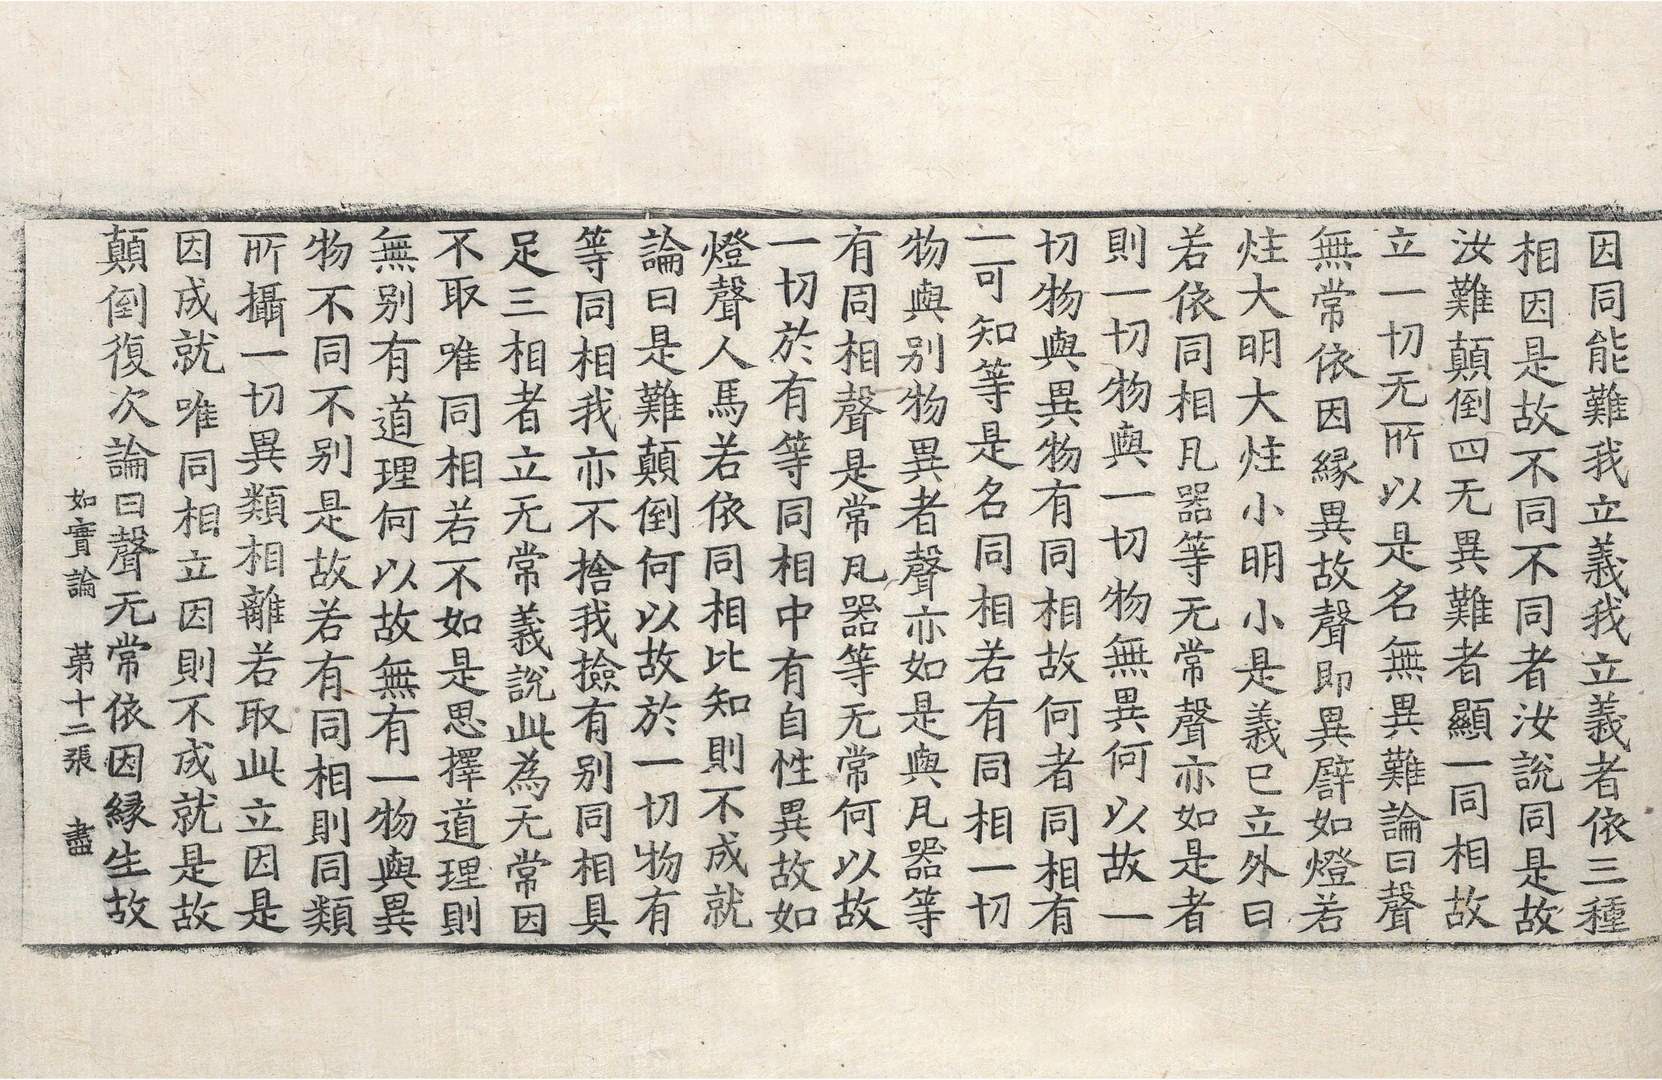 因同能難我立義我立義者依三種
相因是故不同不同者汝說同是故
汝難顛倒四无異難者顯一同相故
立一切无所以是名無異難論曰聲
無常依因緣異故聲即異譬如燈若
炷大明大炷小明小是義已立外曰
若依同相凡器等无常聲亦如是者
則一切物與一切物無異何以故一
切物與異物有同相故何者同相有
一可知等是名同相若有同相一切
物與別物異者聲亦如是與凡器等
有同相聲是常凡器等无常何以故
一切於有等同相中有自性異故如
燈聲人馬若依同相比知則不成就
論曰是難顛倒何以故於一切物有
等同相我亦不捨我撿有別同相具
足三相者立无常義說此為无常因
不取唯同相若不如是思擇道理則
無別有道理何以故無有一物與異
物不同不別是故若有同相則同類
所攝一切異類相離若取此立因是
因成就唯同相立因則不成就是故
顛倒復次論曰聲无常依因緣生故
如實論 第十二張 盡